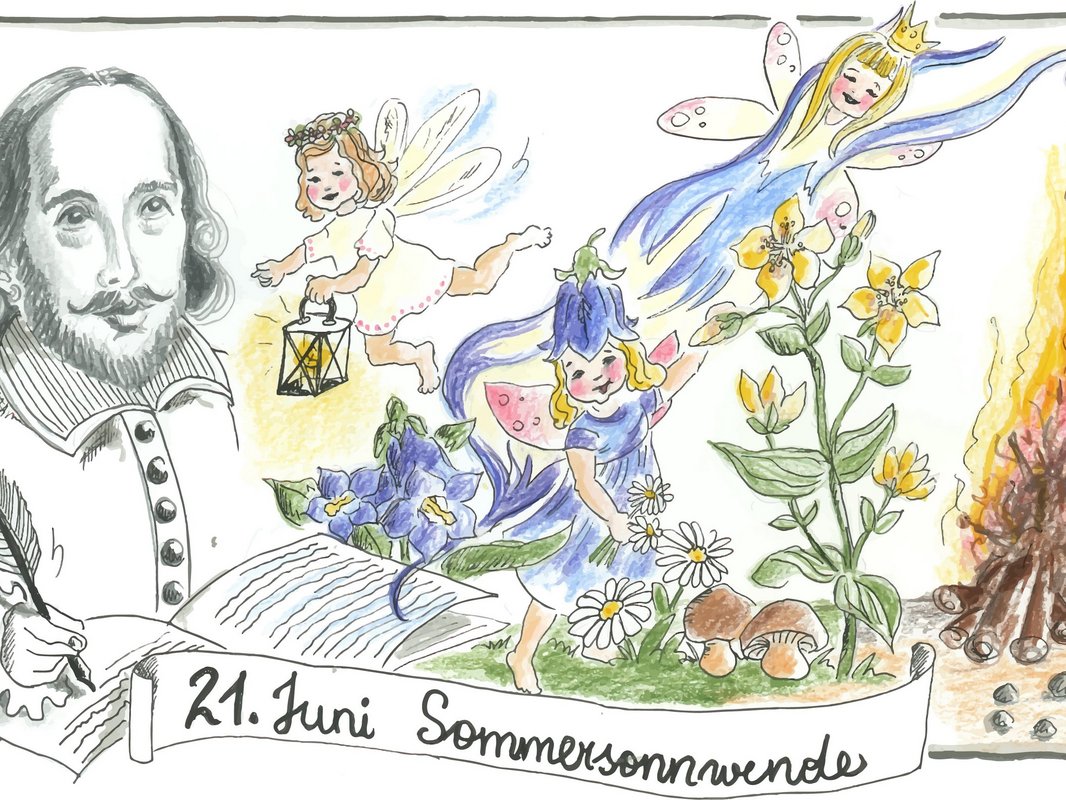 21. Juni Sommersonnwende